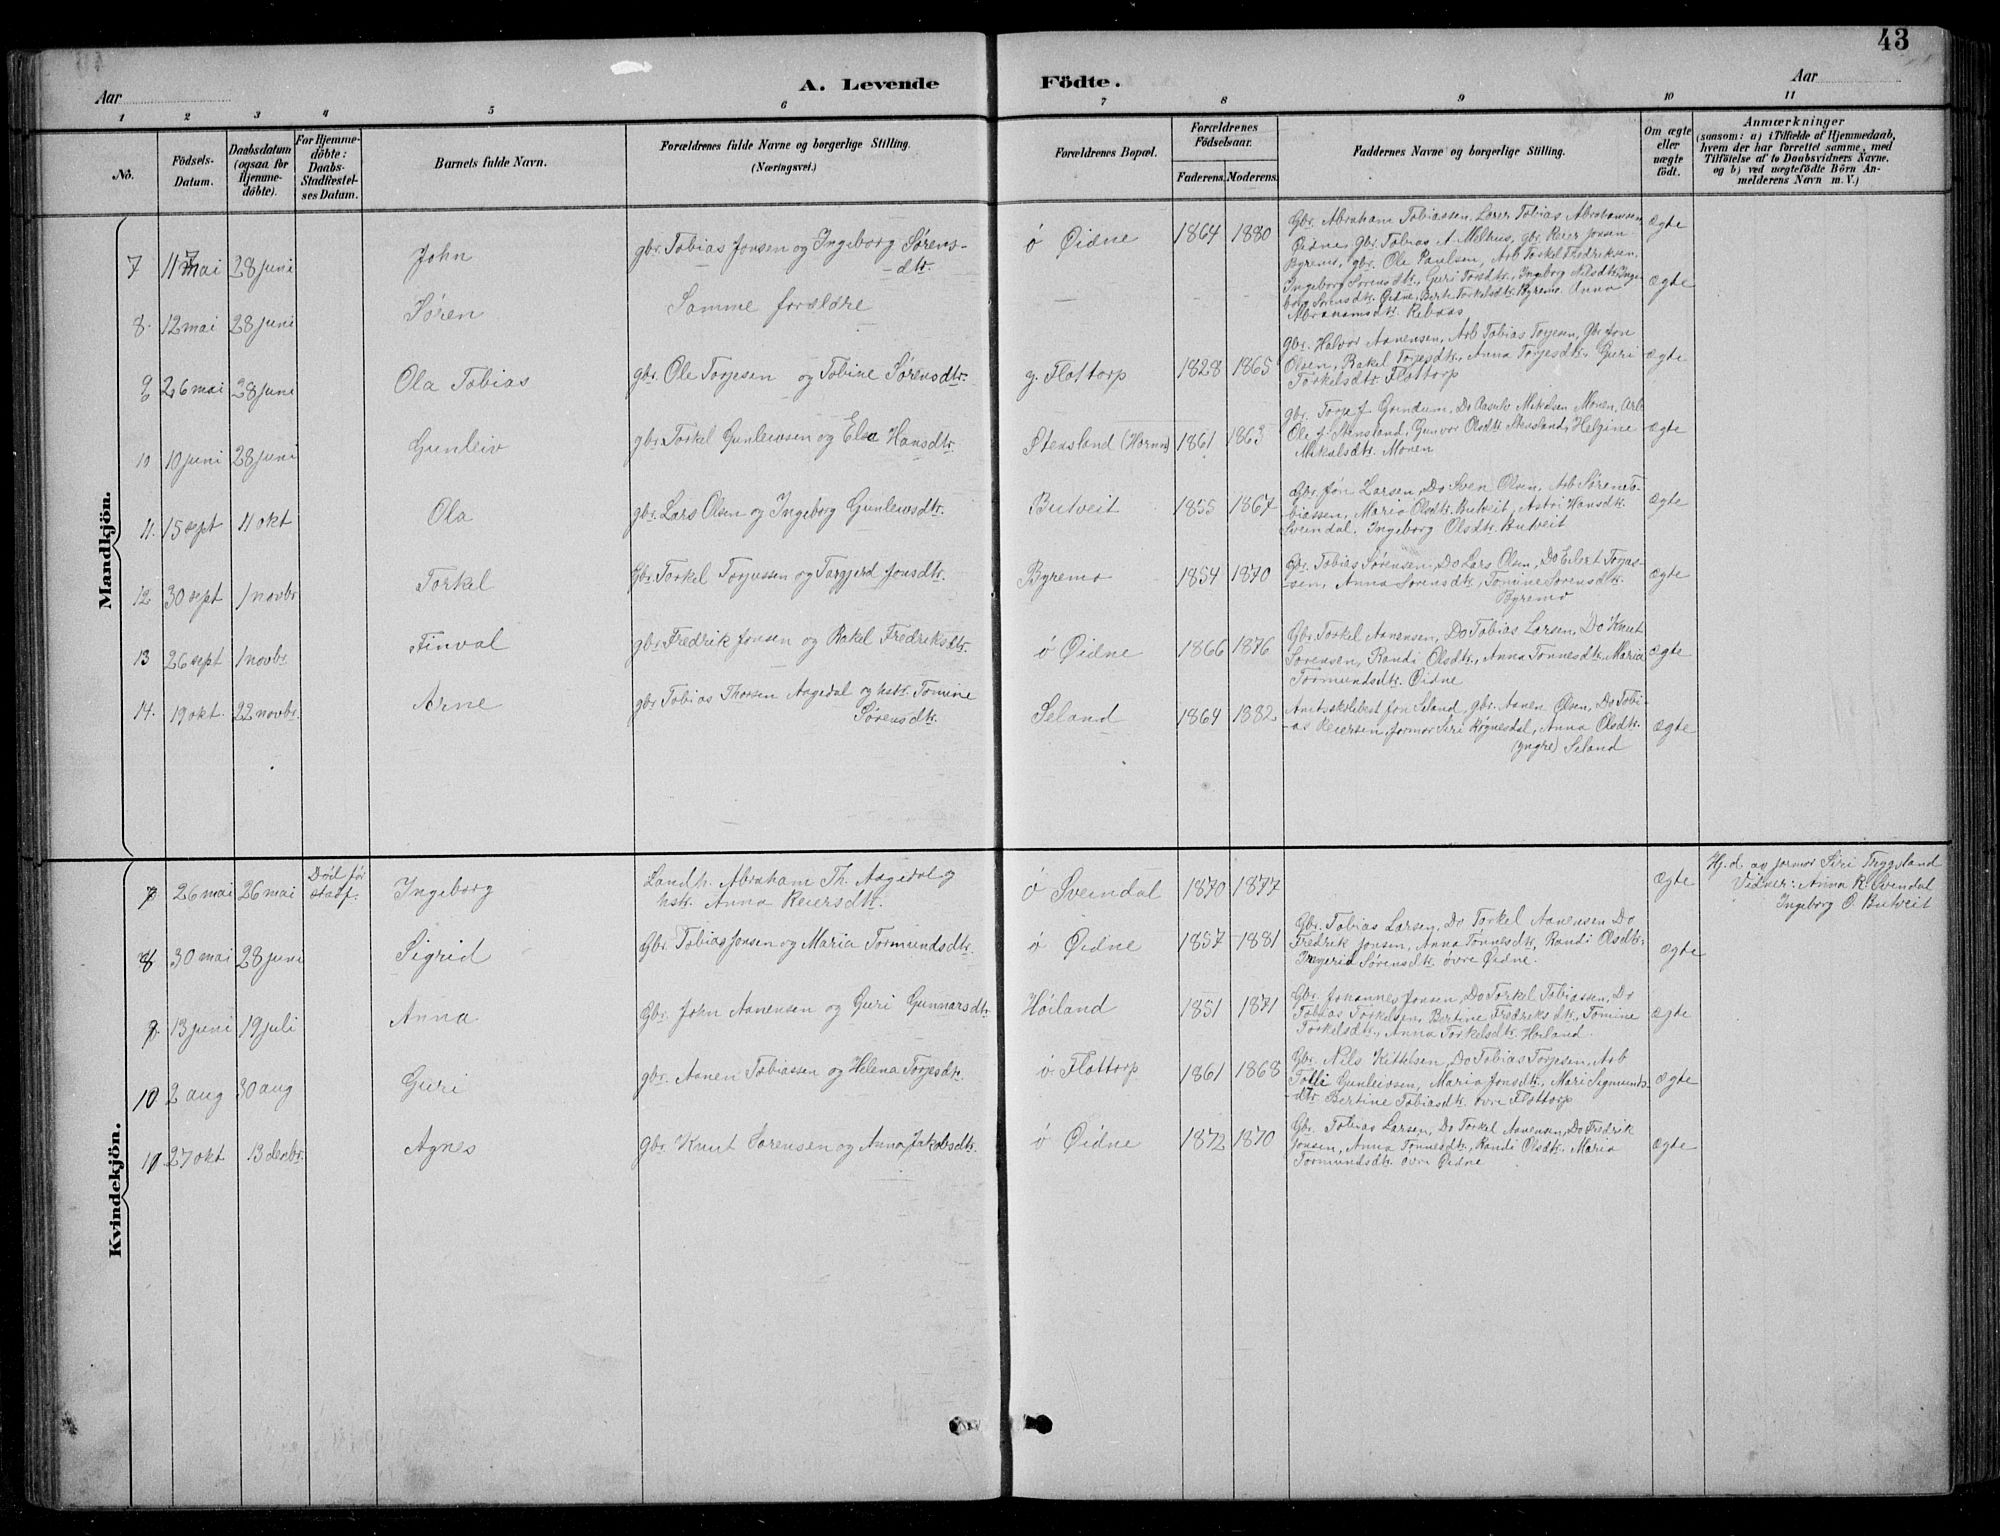 43
A. Levende Födte.
Aar
Aar
1 2 3 4 5 6 7 8 9 10 11
No.
Födsels-Datum.
Daabsdatum (ogsaa for Hjemme-döbte).
For Hjemme-döbte: Daabs-Stadfæstel-ses Datum.
Barnets fulde Navn.
Forældrenes fulde Navne og borgerlige Stilling.
(Næringsvei.)
Forældrenes Bopæl.
Forældrenes Födselsaar.
Faderens. Moderens.
Faddernes Navne og borgerlige Stilling.
Om ægte eller uægte födt.
Anmærkninger
(saasom: a) i Tilfælde af Hjemmedaab, hvem der har forrettet samme, med Tilföielse af to Daabsvidners Navne, og b) ved uægtefödte Börn Anmelderens Navn m. V.)
Mandkjön.
7 11 mai 28 juni John gbr. Tobias Jonsen og Ingeborg Sørens-
dtr. ö Øidne 1864 1880 Gbr. Abraham Tobiassen, Lærer Tobias Abrahamsen
Øidne, gbr. Tobias A. Melhus, gbr. Reier Jonsen
Byremo, gbr. Ole Paulsen, Arb Torkel Fredriksen,
Ingeborg Sørensdtr, Guri Torsdtr., Ingeborg Nilsdtr, Inge-
borg Sørensdtr. Øidne, Berte Torkelsdtr. Byremo Anna
Abrahamsdtr. Ægte
8. 12 mai 28 juni Søren Samme forældre Ægte
9 26 mai 28 juni Ola Tobias gbr. Ole Torjesen og Tobine Sørensdtr. y. Flottorp 1828 1865 gbr. Halvor Aanensen, Arb Tobias Torjesen, Gbr. Jon
Olsen, Rakel Torjesdtr., Anna Torjesdtr., Guri
Torkelsdtr. Flottorp Ægte
10 10 juni 28 juni Gunleiv gbr. Torkel Gunleivsen og Elsa Hansdtr. Stensland 1861 1863 gbr. Torje J. Grindum, Do Aasulv Mikalsen Monen, Arb
Ole J. Stensland, Gunvor Olsdtr. Stensland, Helgine
Mikalsdtr. Monen Ægte
11. 15 sept 11 okt Ola gbr. Lars Olsen og Ingeborg Gunleivsdtr. Butveit 1855 1867 Gbr. Jon Larsen, Do Sven Olsen, Arb Søren To-
biassen, Maria Olsdtr. Butveit, Astri Hansdtr.
Sveindal. Ingeborg Olsdtr. Butveit Ægte
12 30 sept 1 novbr Torkel Gbr Torkel Torjussen og Targjerd Jonsdtr. Byremo 1854 1870 Gbr. Tobias Sørensen, Do Lars Olsen, Do Eilert Torjus-
sen, Anna Sørensdtr., Tomine Sørensdtr.
Byremo Ægte
13 26 sept 1 novbr. Finval gbr. Fredrik Jonsen og Rakel Fredriksdtr. ö Øidne 1866 1876 Gbr. Torkel Aanensen, Do Tobias Larsen, Do Knut
Sørensen, Randi Olsdtr., Anna Tønnesdtr. Maria
Tormundsdtr. Øidne Ægte
14. 19 okt. 22 novbr. Arne gbr Tobias Thorsen Aagedal og hstr. Tomine
Sørensdtr. Seland 1864 1882 Amtsskolebest Jon Seland, gbr. Aanen Olsen, Do Tobi-
as Reiersen, formor Siri Røgnesdal, Anna Olsdtr.
(yngre) Seland Ægte
Kvindekjön.
7 26 mai 26 mai Död før stadf. Ingeborg Landh. Abraham Th. Aagedal og
hstr. Anna Reiersdtr. ö Sveindal 1870 1877 Ægte Hj. d. av formor Siri Tryggsland
Vidner: Anna R. Svendal
Ingeborg O. Butveit
8 30 mai 28 juni Sigrid Gbr. Tobias Jonsen og Maria Tormundsdtr. ö Øidne 1857 1881 Gbr. Tobias Larsen, Do Torkel Aanensen Do
Fredrik Jonsen, Anna Tønnesdtr., Randi Olsdtr.
Sørensdtr. övre Øidne. Ægte
9. 13 juni 19 juli Anna Gbr. John Aanensen og Guri Gunnarsdtr. Høiland 1851 1871 Gbr. Johannes Jonsen, Do Torkel Tobiassen, Do
Tobias Torkelsen, Bertine Fredriksdtr., Tomine
Torkelsdtr., Anna Torkelsdtr. Høiland. Ægte
10 2 aug 30 aug Guri gbr. Aanen Tobiassen og Helena Torjesdtr. ö. Flottorp 1861 1868 Gbr. Nils Kittelsen, Do Tobias Torjesen, Arb
Tolli Gunleivsen, Maria Jonsdtr., Mari Sigmunds-
dtr. Bertine Tobiasdtr. övre Flottorp Ægte
11 27 okt 13 decbr. Agnes Gbr. Knut Sørensen og Anna Jakobsdtr. ö Øidne 1872 1870 Gbr. Tobias Larsen, Do Torkel Aanensen, Do Fredrik
Jonsen, Anna Tønnesdtr., Randi Olsdtr. Maria
Tormundsdtr. övre Øidne Ægte